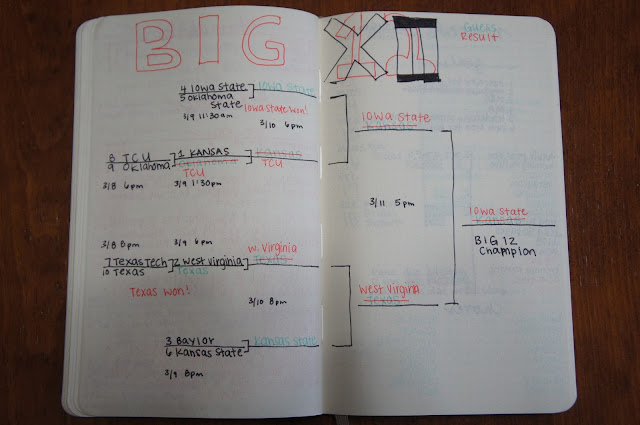 BIG XII
Guess
Result
4 Iowa State
5 Oklahoma State
3/9 11:30 am
Iowa State
Iowa State won!
3/10 6pm
8 TCU
9 Oklahoma
3/8 6pm
1 KANSAS
Oklahoma
TCU
3/9 1:30pm
Kansas
TCU
3/8 8pm
7 Texas Tech
10 Texas
Texas won!
3/9 6pm
2 West Virginia
Texas
W. Virginia
Texas
3/10 8pm
3 Baylor
6 Kansas State
3/9 8pm
Kansas State
Iowa State
Kansas
3/11 5pm
West Virginia
Texas
Iowa State
Kansas
BIG 12
Champion